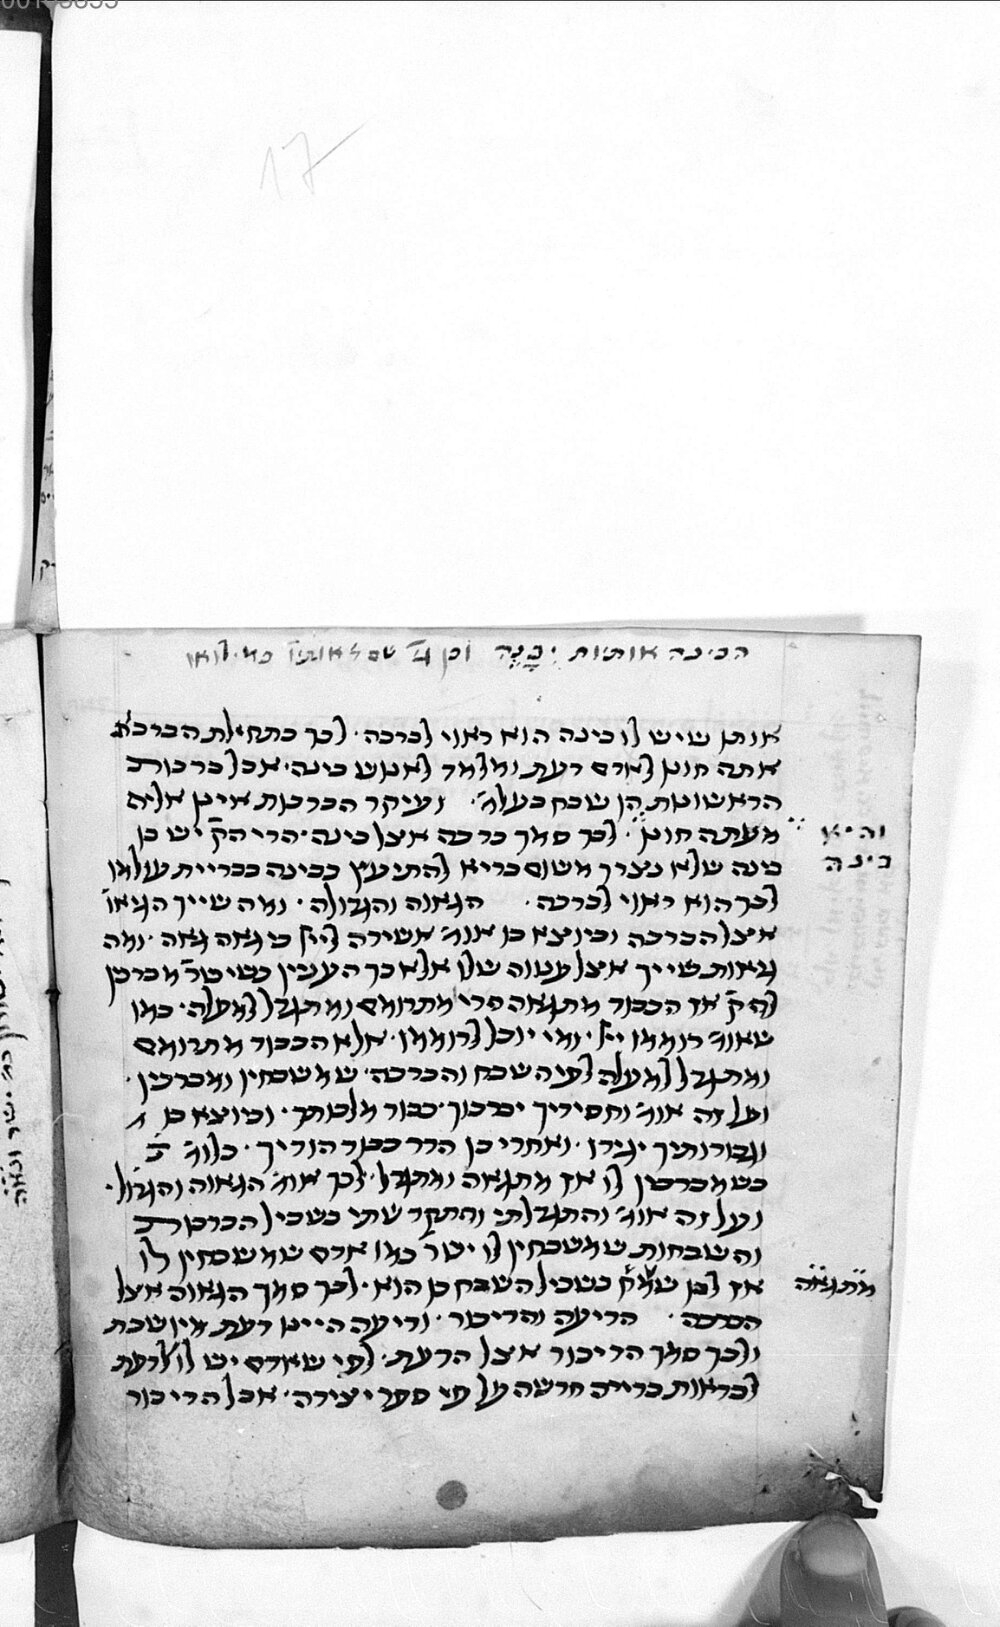 17
הבינה אותות יִבָּנֶה וכן
אותן שיש לו בינה הוא ראוי לברכה · לכך בתחילת הברכא
אתה חונן לאדם דעת ומלמד לאנוש בינה · אבל ברכות
הראשונות הן שבח בעלמ' · ועיקר הברכות אינן אלא
מעתה חונן · לכך סמך ברכה אצל בינה · הרי הק' יש בו
בינה שלא נצרך משום בריא להתיעץ בבינה בבריית עולמו
לכך הוא ראוי לברכה · הגאוה והגדולה · ומה שייך הגיאו'
אצל הברכה וכיוצא בו אומ' אשירה לייי כי גאה גאה · ומה
גיאות שייך אצל ענוה שלו אלא כך העניין כשיש' מברכין
להק' אז הכבוד מתגאה פרי' מתרומם ומתגדל למעלה · כמו
שאומ' רוממו ייי · ומי יוכל לרוממו · אלא הכבוד מתרומם
ומתגדל למעלה לפי השבח והברכה · שמשבחין ומברכין ·
ועל זה אומ' וחסידיך יברכוך · כבוד מלכותך · וכיוצא בו
וגבורותיך יגידו · ואחרי כן הדר כבוד הודיך · כלומ'
כשמברכין לו אז מתגאה ומתגדל · לכך אומ' הגאוה והגדול' ·
ועל זה אומ' והתגדלתי והתקדשתי בשביל הברכות
והשבחות שמשבחין לו יש' כמו אדם שמשבחין לו
אז לבו שמח בשביל השבח כן הוא · לכך סמך הגאוה אצל
הברכה · הדיעה והדיבור · ודיעה היינו דעת מיושבת
ולכך סמך הדיבור אצל הדעת · לפי שאדם יש לו לדעת
לבראות בריה חדשה על פי ספר יצירה · אבל הדיבור
והיא
בינה
מתגאה